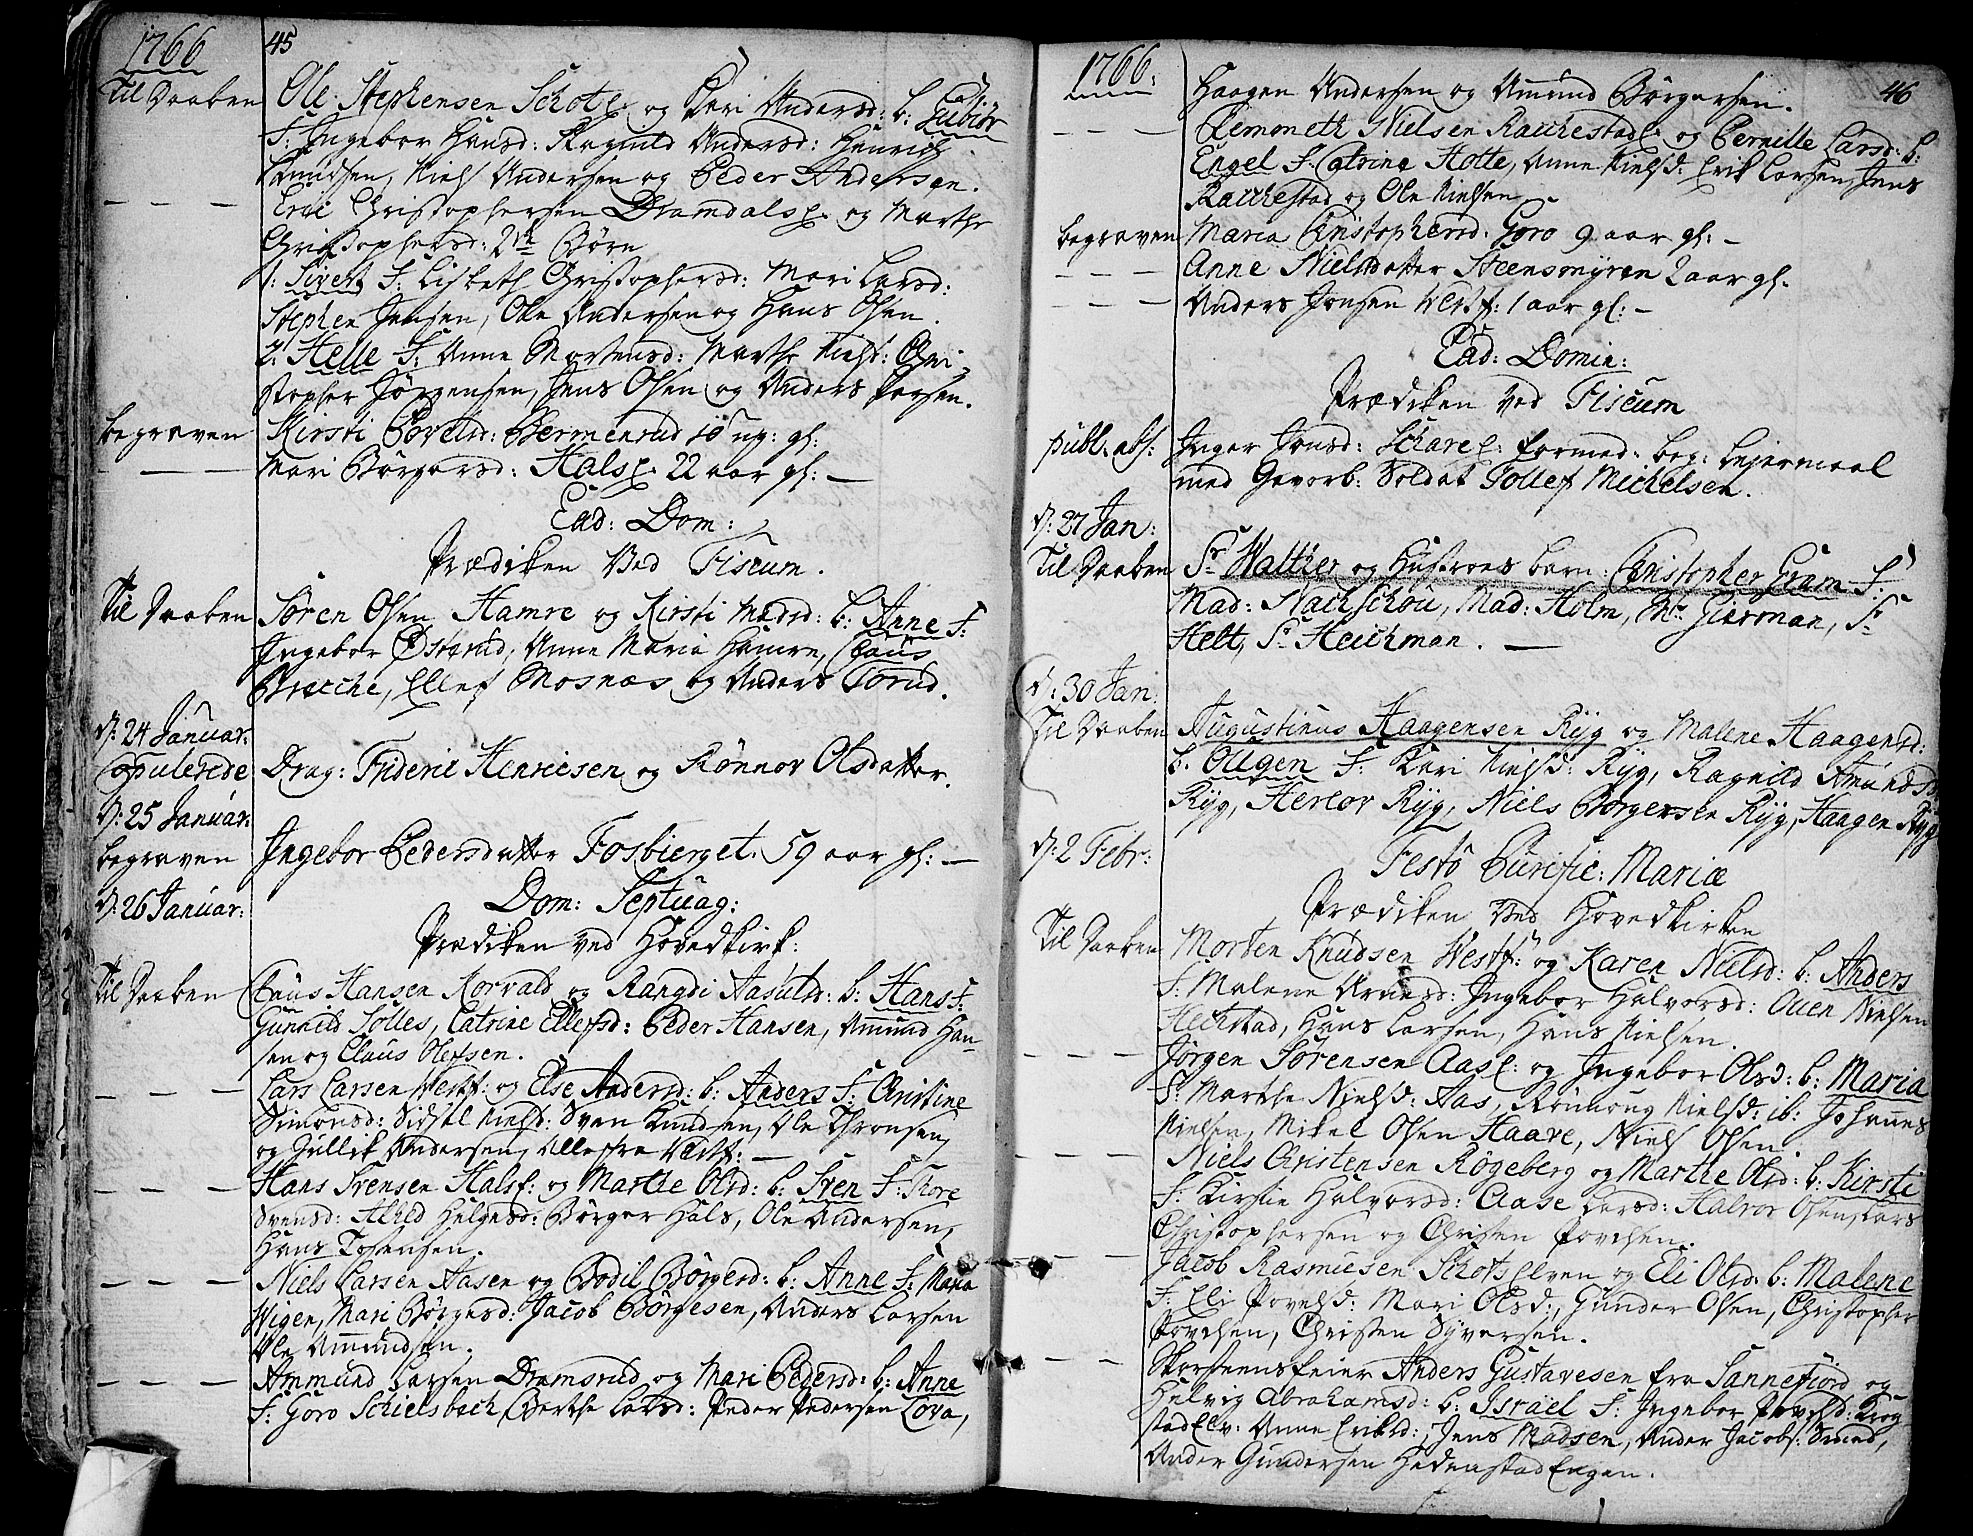 1766
45
Til Daaben Ole Stephensen Schotz. og Kari Andersd: b: Gubiør
F: Ingebor Hansd: Ragnild Andersd: Henrich
Knudsen, Niels Andersen og Peder Andersen.
— — — Eric Christophersen Dramdalsp. og Marthe
Christophersd: 2de Børn
1: Sivert F: Lisbeth Christophersd: Mari Larsd:
Stephen Jensen, Ole Andersen og Hans Olsen.
2: Helle F: Anne Mortensd: Marthe Nielsd: Chri-
stopher Jørgensen, Jens Olsen og Anders Larsen.
begraven Kirsti Povelsd: Bermenrud 10 ug: gl:
— — — Mari Børgersd: Hals. 22 aar gl: —
Ead: Dom:
Prædiken Ved Fiscum.
Til Daaben Søren Olsen Hamre og Kirsti Madsd: b: Anne F:
Ingebor Østerud, Anne Maria Hamre, Claus
Bræche, Ellef Mosnæs og Anders Torud.
D: 24 Januar:
Copulerede Drag: Frideric Henricsen og Rønnov Olsdatter.
D: 25 Januar:
begraven Ingebor Pedersdatter Fosbierget. 59 aar gl: —
D: 26 Januar: Dom: Septuag:
Prædiken ved Hovedkirk:
Til Daaben Claus Hansen Korvald og Rangdi Aasulsd: b: Hans F:
Gunnild Solles, Catrine Ellefsd: Peder Hansen, Amund Han-
sen og Claus Olefsen.
— — — Lars Larsen Vestf: og Else Andersd: b: Anders F: Christine
Simonsd: Sidsel Nielsd: Sven Knudsen, Ole Thronsen,
og Gullik Andersen, Alle fra Vestf: —
— — — Hans Svensen Halsf: og Marthe Olsd: b: Sven F: Tore
Svensd: Alhed Helgesd: Børger Hals, Ole Andersen,
Hans Tostensen.
— — — Niels Larsen Aasen og Bodil Børgersd: b: Anne F: Maria
Wigen, Mari Børgesd: Jacob Børgesen, Anders Larsen
Ole Ammundsen.
— — — Ammund Larsen Dramsrud og Mari Pedersd: b: Anne
F: Goro Schielsbech, Berthe Larsd: Peder Pedersen Lova,
1766:
46
Haagen Andersen og Amund Børgersen.
— — — Clemmeth Nielsen Rauchestad og Pernille Larsd: b:
Engel F: Catrine Hotte, Anne Nielsd: Erik Larsen, Jens
Rauchestad og Ole Nielsen
begraven Maria Christophersd: Goro 9 aar gl: —
— — — Anne Nielsdatter Steensmyren 2 aar gl.
— — — Anders Jonsen Vestf: 1 aar gl: —
Ead: Domin:
Prædiken ved Fiscum
publ: abs: Inger Jonsd: Schare. formed: beg: Leiermaal
med Gevorb: Soldat Tollef Michelsen.
D: 27 Jan:
Til Daaben Sr Walther og Hustroes barn: Christopher Gram F:
Mad: Nachschou, Mad: Holm, Mr Gierman, Sr
Helt, Sr Heuchman. —
D: 30 Jan:
Til Daaben Augustinus Haagensen Ryg og Malene Haagensd:
b: Ougen F: Kari Nielsd: Ryg, Ragnild Amunds
Ryg, Herlov Ryg, Niels Børgersen Ryg, Haagen Ryg
D: 2 Febr: Festo Purific: Mariæ
Prædiken Ved Hovedkirken
Til Daaben Morten Knudsen Westf: og Karen Nielsd: b: Anders
F: Malene Arnesd: Ingebor Halvorsd: Ouen Nielsen
Hechstad, Hans Larsen, Hans Nielsen.
— — — Jørgen Sørensen Aas. og Ingebor Olsd: b: Maria
F: Marthe Nielsd: Aas, Rønnoug Nielsd: ib: Johannes
Nielsen, Mikel Olsen Haave, Niels Olsen.
— — — Niels Christensen Røgeberg og Marthe Olsd: b: Kirsti
F: Kirstin Halvorsd: Aase Larsd: Halvor Olsen, Lars
Christophersen og Christen Povelsen.
— — — Jacob Rasmusen Schotselven og Eli Olsd: b: Malene
F: Eli Povelsd: Mari Olsd:, Gunder Olsen, Christopher
Povelsen, Christen Syversen.
— — Skorsteensfeier Anders Gustavesen fra Sannefiord og
Helvig Abrahamsd: b: Israel F: Ingebor Povelsd: Krog-
stadElv: Anne Eriksd:, Jens Madsen, Ander Jacobs: Smed,
Ander Gundersen HedenstadEngen.